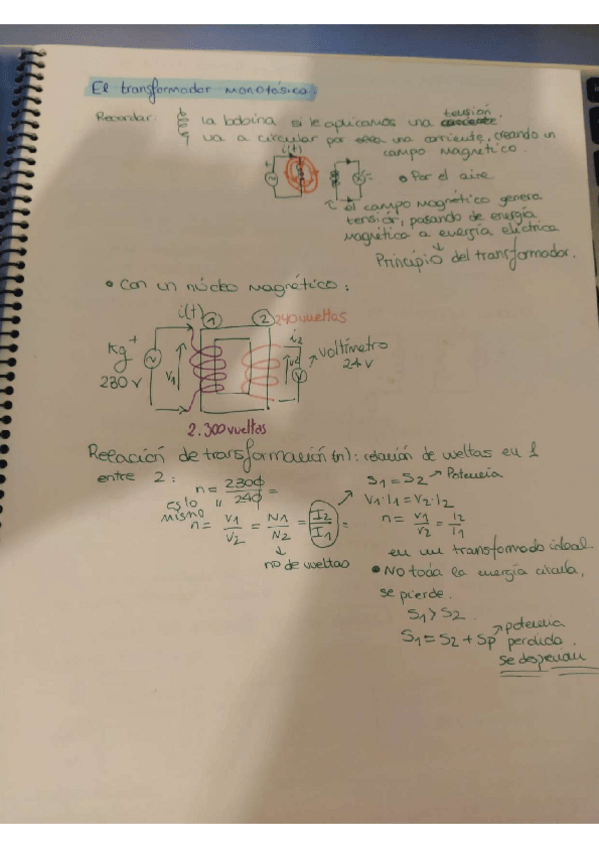 El transformador monofásico.
Recordar: la bobina si le aplicamos una tensión
va a circular por una corriente, creando un
i(t) campo magnético.
• Por el aire
el campo magnético genera
tensión, pasando de energía
magnética a energía eléctrica
Principio del transformador.
• Con un núcleo magnético:
i(t) 1 2 240 vueltas
Kg + V1 i2 V voltímetro
230 V 24 V
2.300 vueltas
Relación de transformación (n): relación de vueltas en 1
entre 2: n = 2300/240 =
es lo mismo
n = V1/V2 = N1/N2 = I2/I1 =
no de vueltas
S1 = S2 → Potencia
V1·I1 = V2·I2
n = V1/V2 = I2/I1
en un transformado ideal
• No toda la energía circula,
se pierde.
S1 > S2
S1 = S2 + Sp potencia perdida.